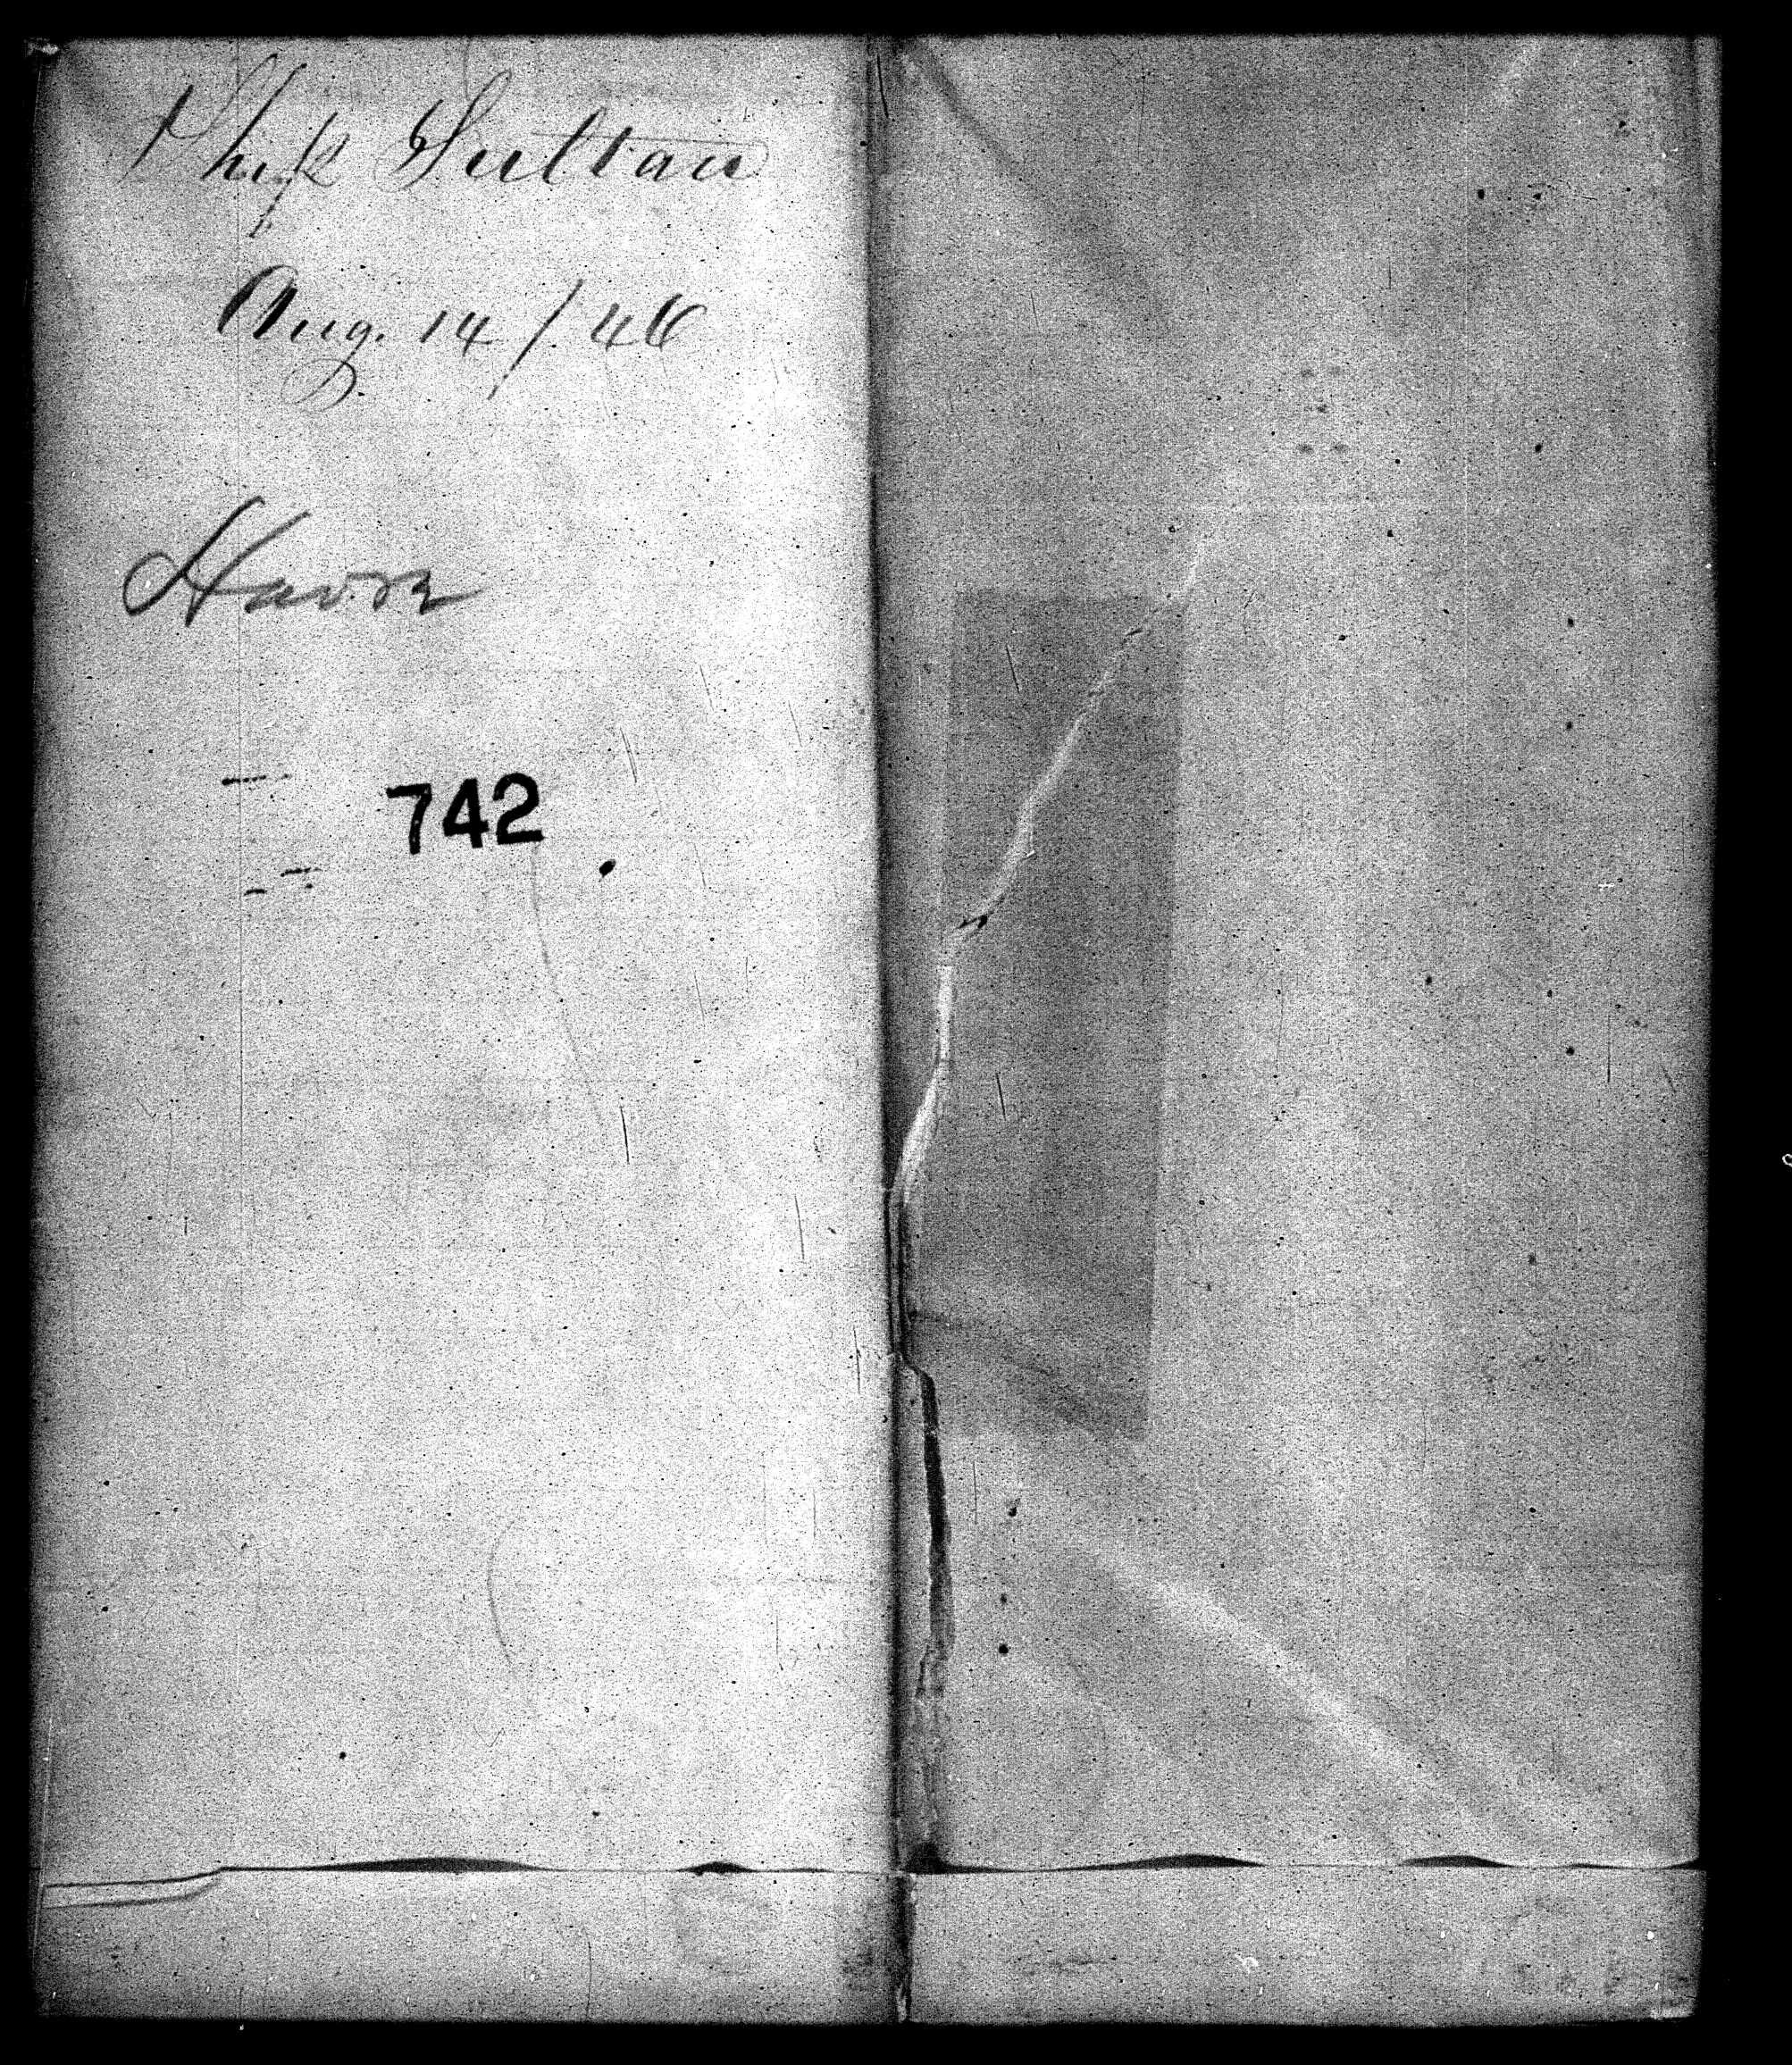 Ship Sultan
Aug. 14 / 46
Havre
742